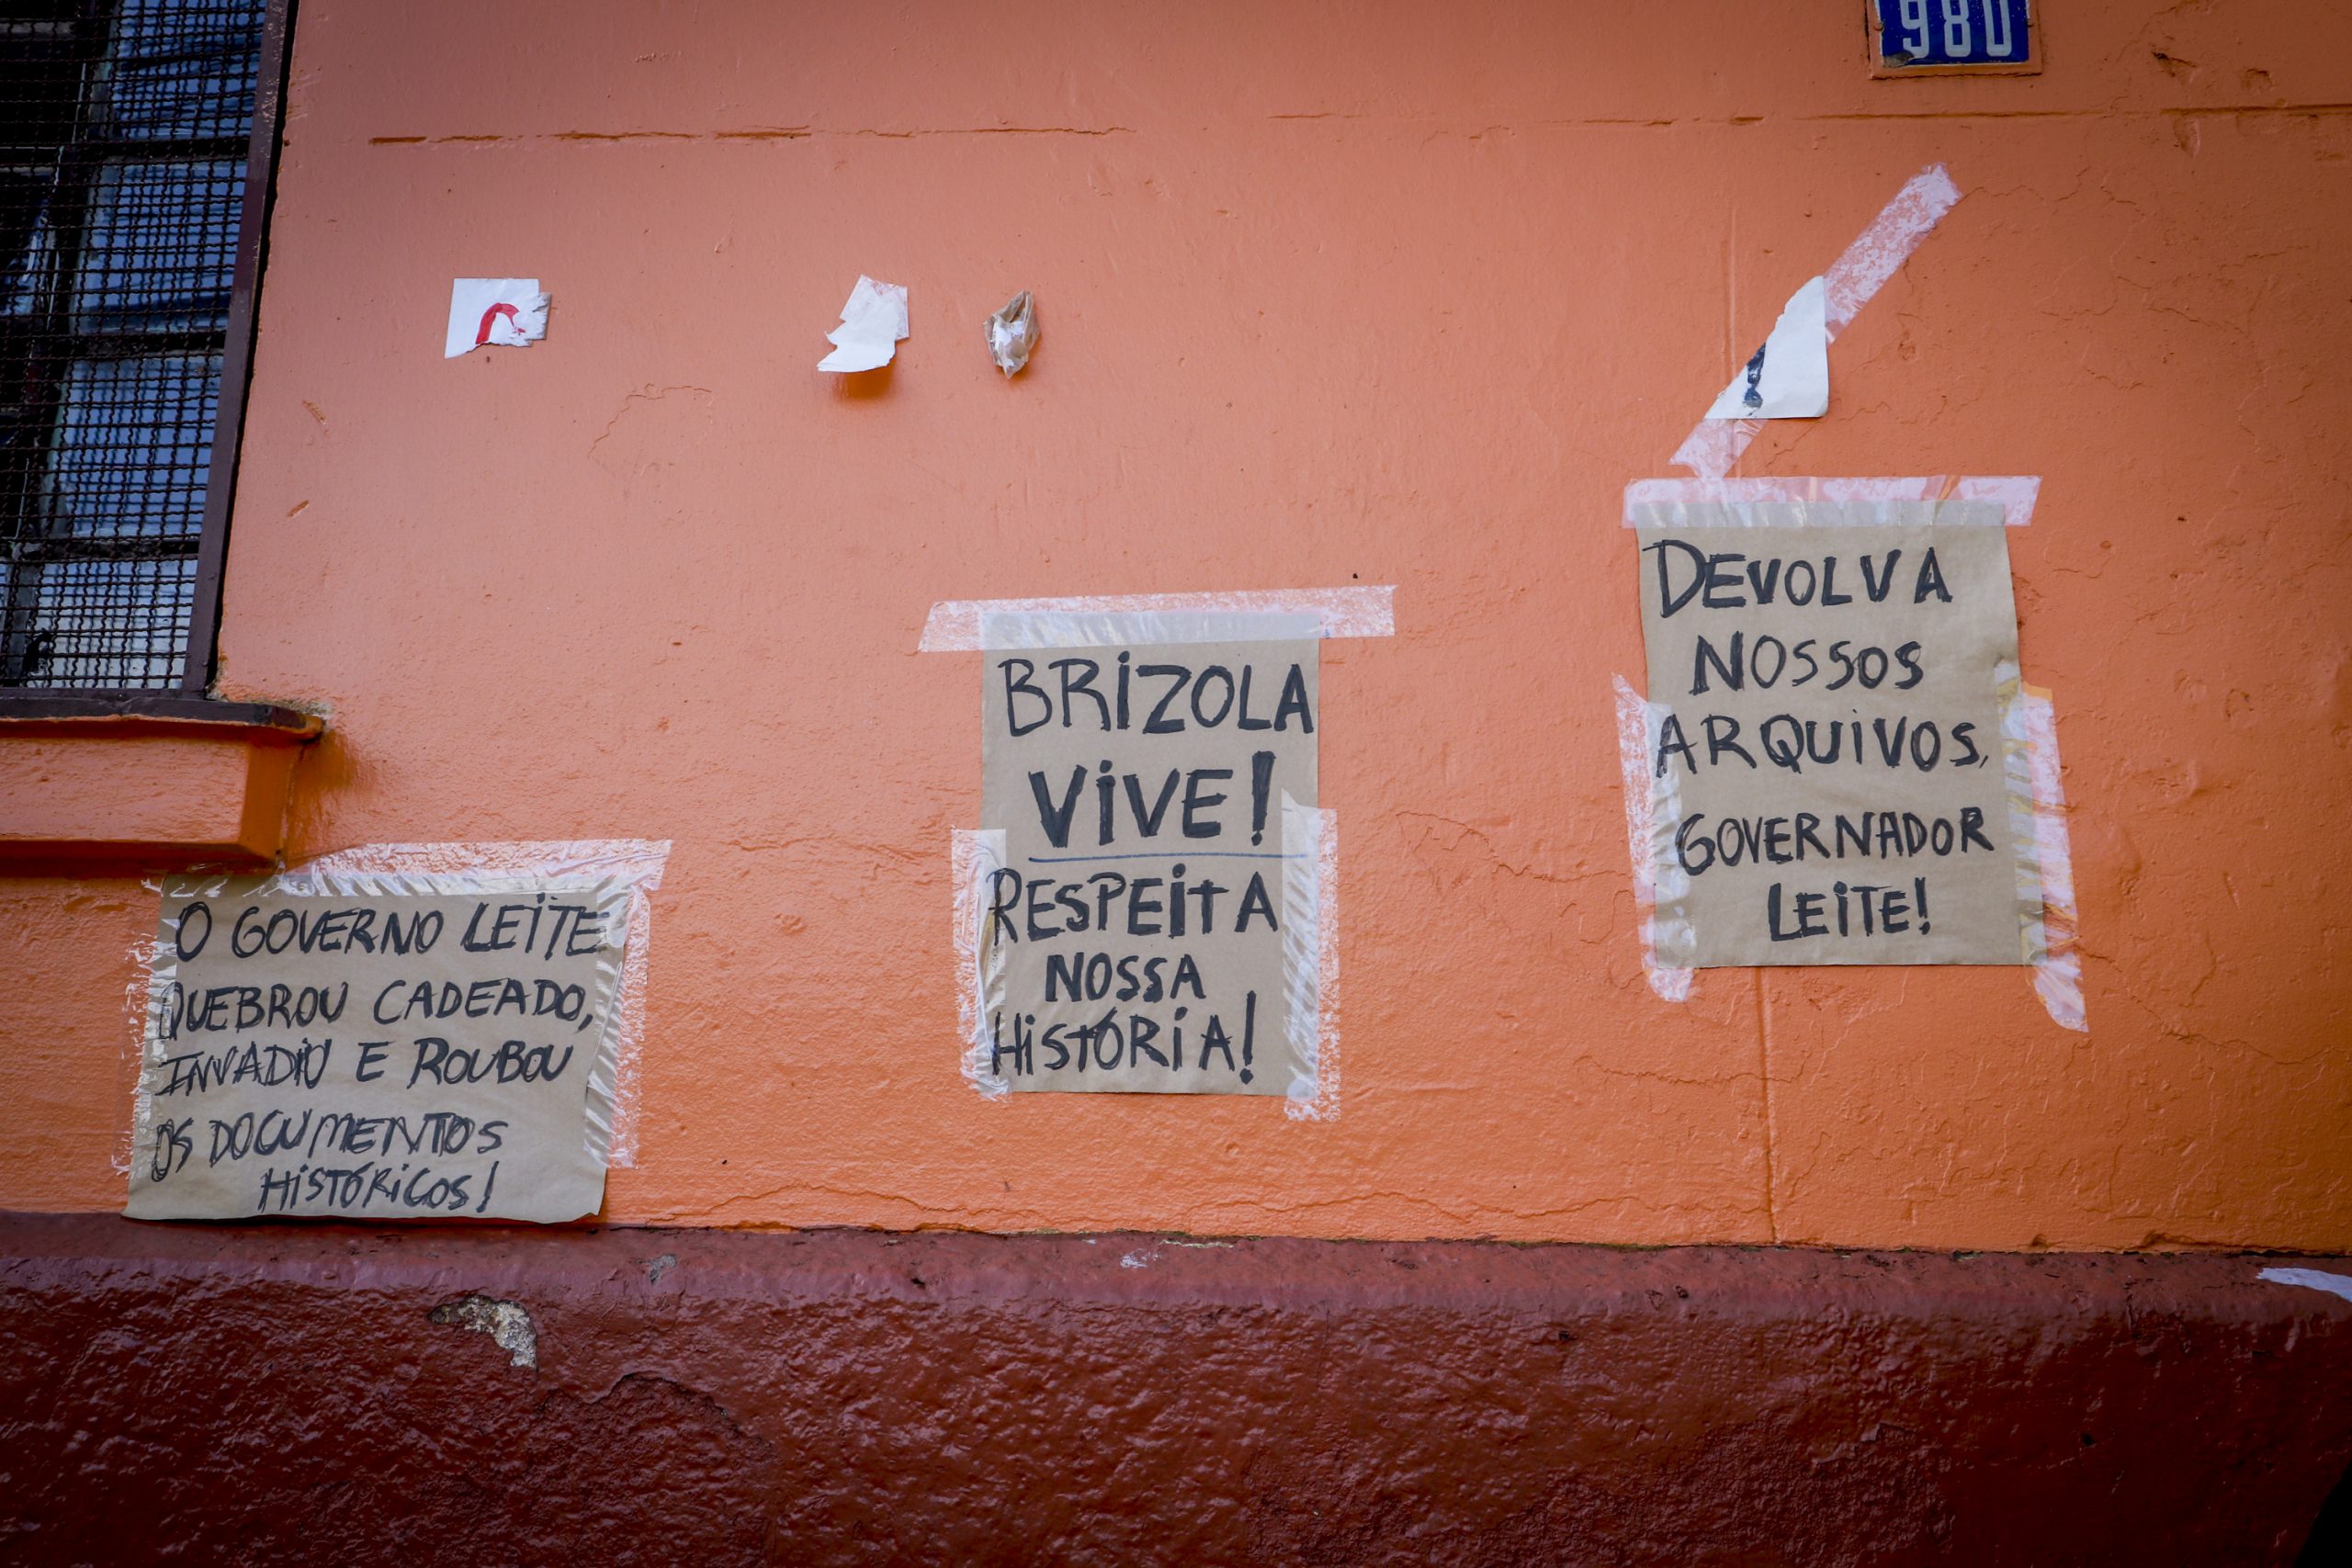 980
O GOVERNO LEITE
QUEBROU CADEADO,
INVADIU E ROUBOU
OS DOCUMENTOS
HISTÓRICOS!
BRIZOLA
VIVE!
RESPEITA
NOSSA
HISTÓRIA!
DEVOLVA
NOSSOS
ARQUIVOS,
GOVERNADOR
LEITE!